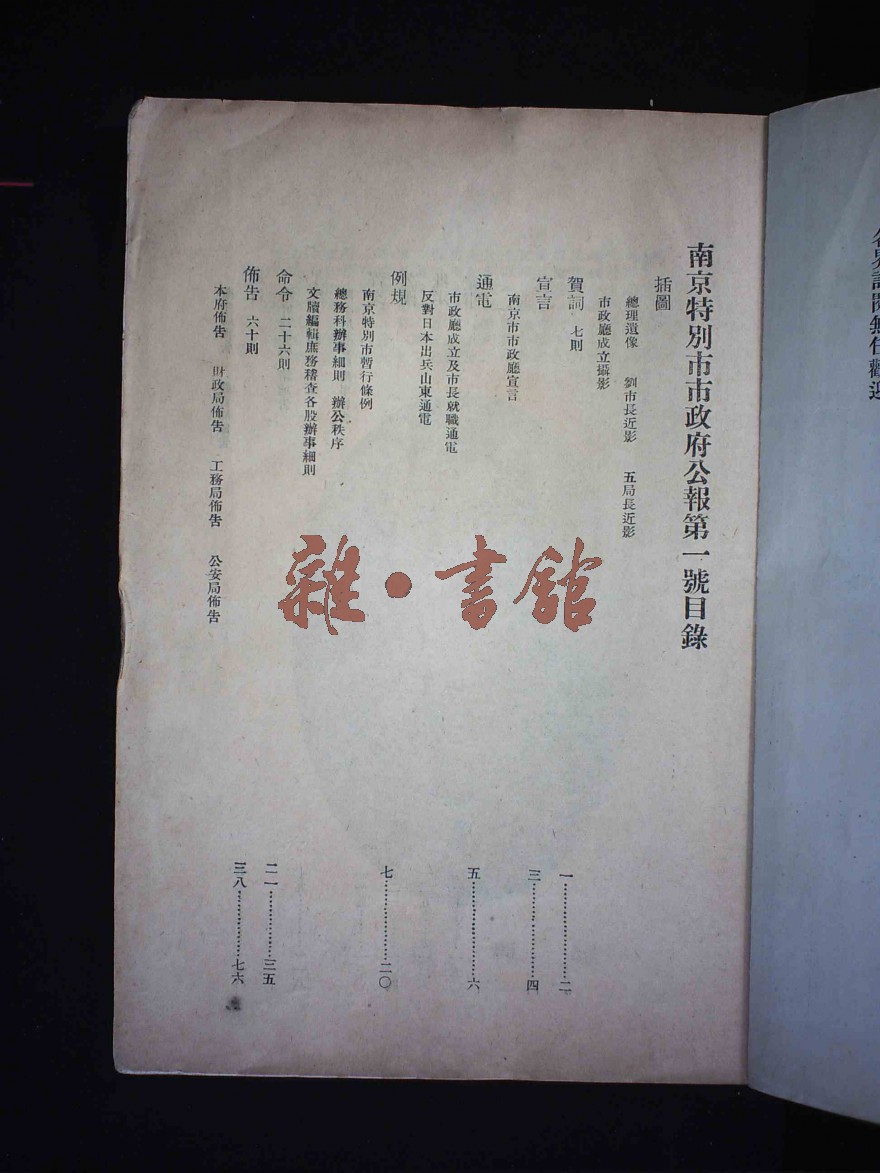 南京特別市市政府公報第一號目錄
插圖
總理遺像 劉市長近影 五局長近影
市政廳成立攝影
賀詞 七則 一……二
宣言 三……四
南京市市政廳宣言
通電 五……六
市政廳成立及市長就職通電
反對日本出兵山東通電
例規 七……二〇
南京特別市暫行條例
總務科辦事細則 辦公秩序
文牘編輯庶務稽查各股辦事細則
命令 二十六則 二一……三五
佈告 六十則 三八……七六
本府佈告 財政局佈告 工務局佈告 公安局佈告
雜·書館